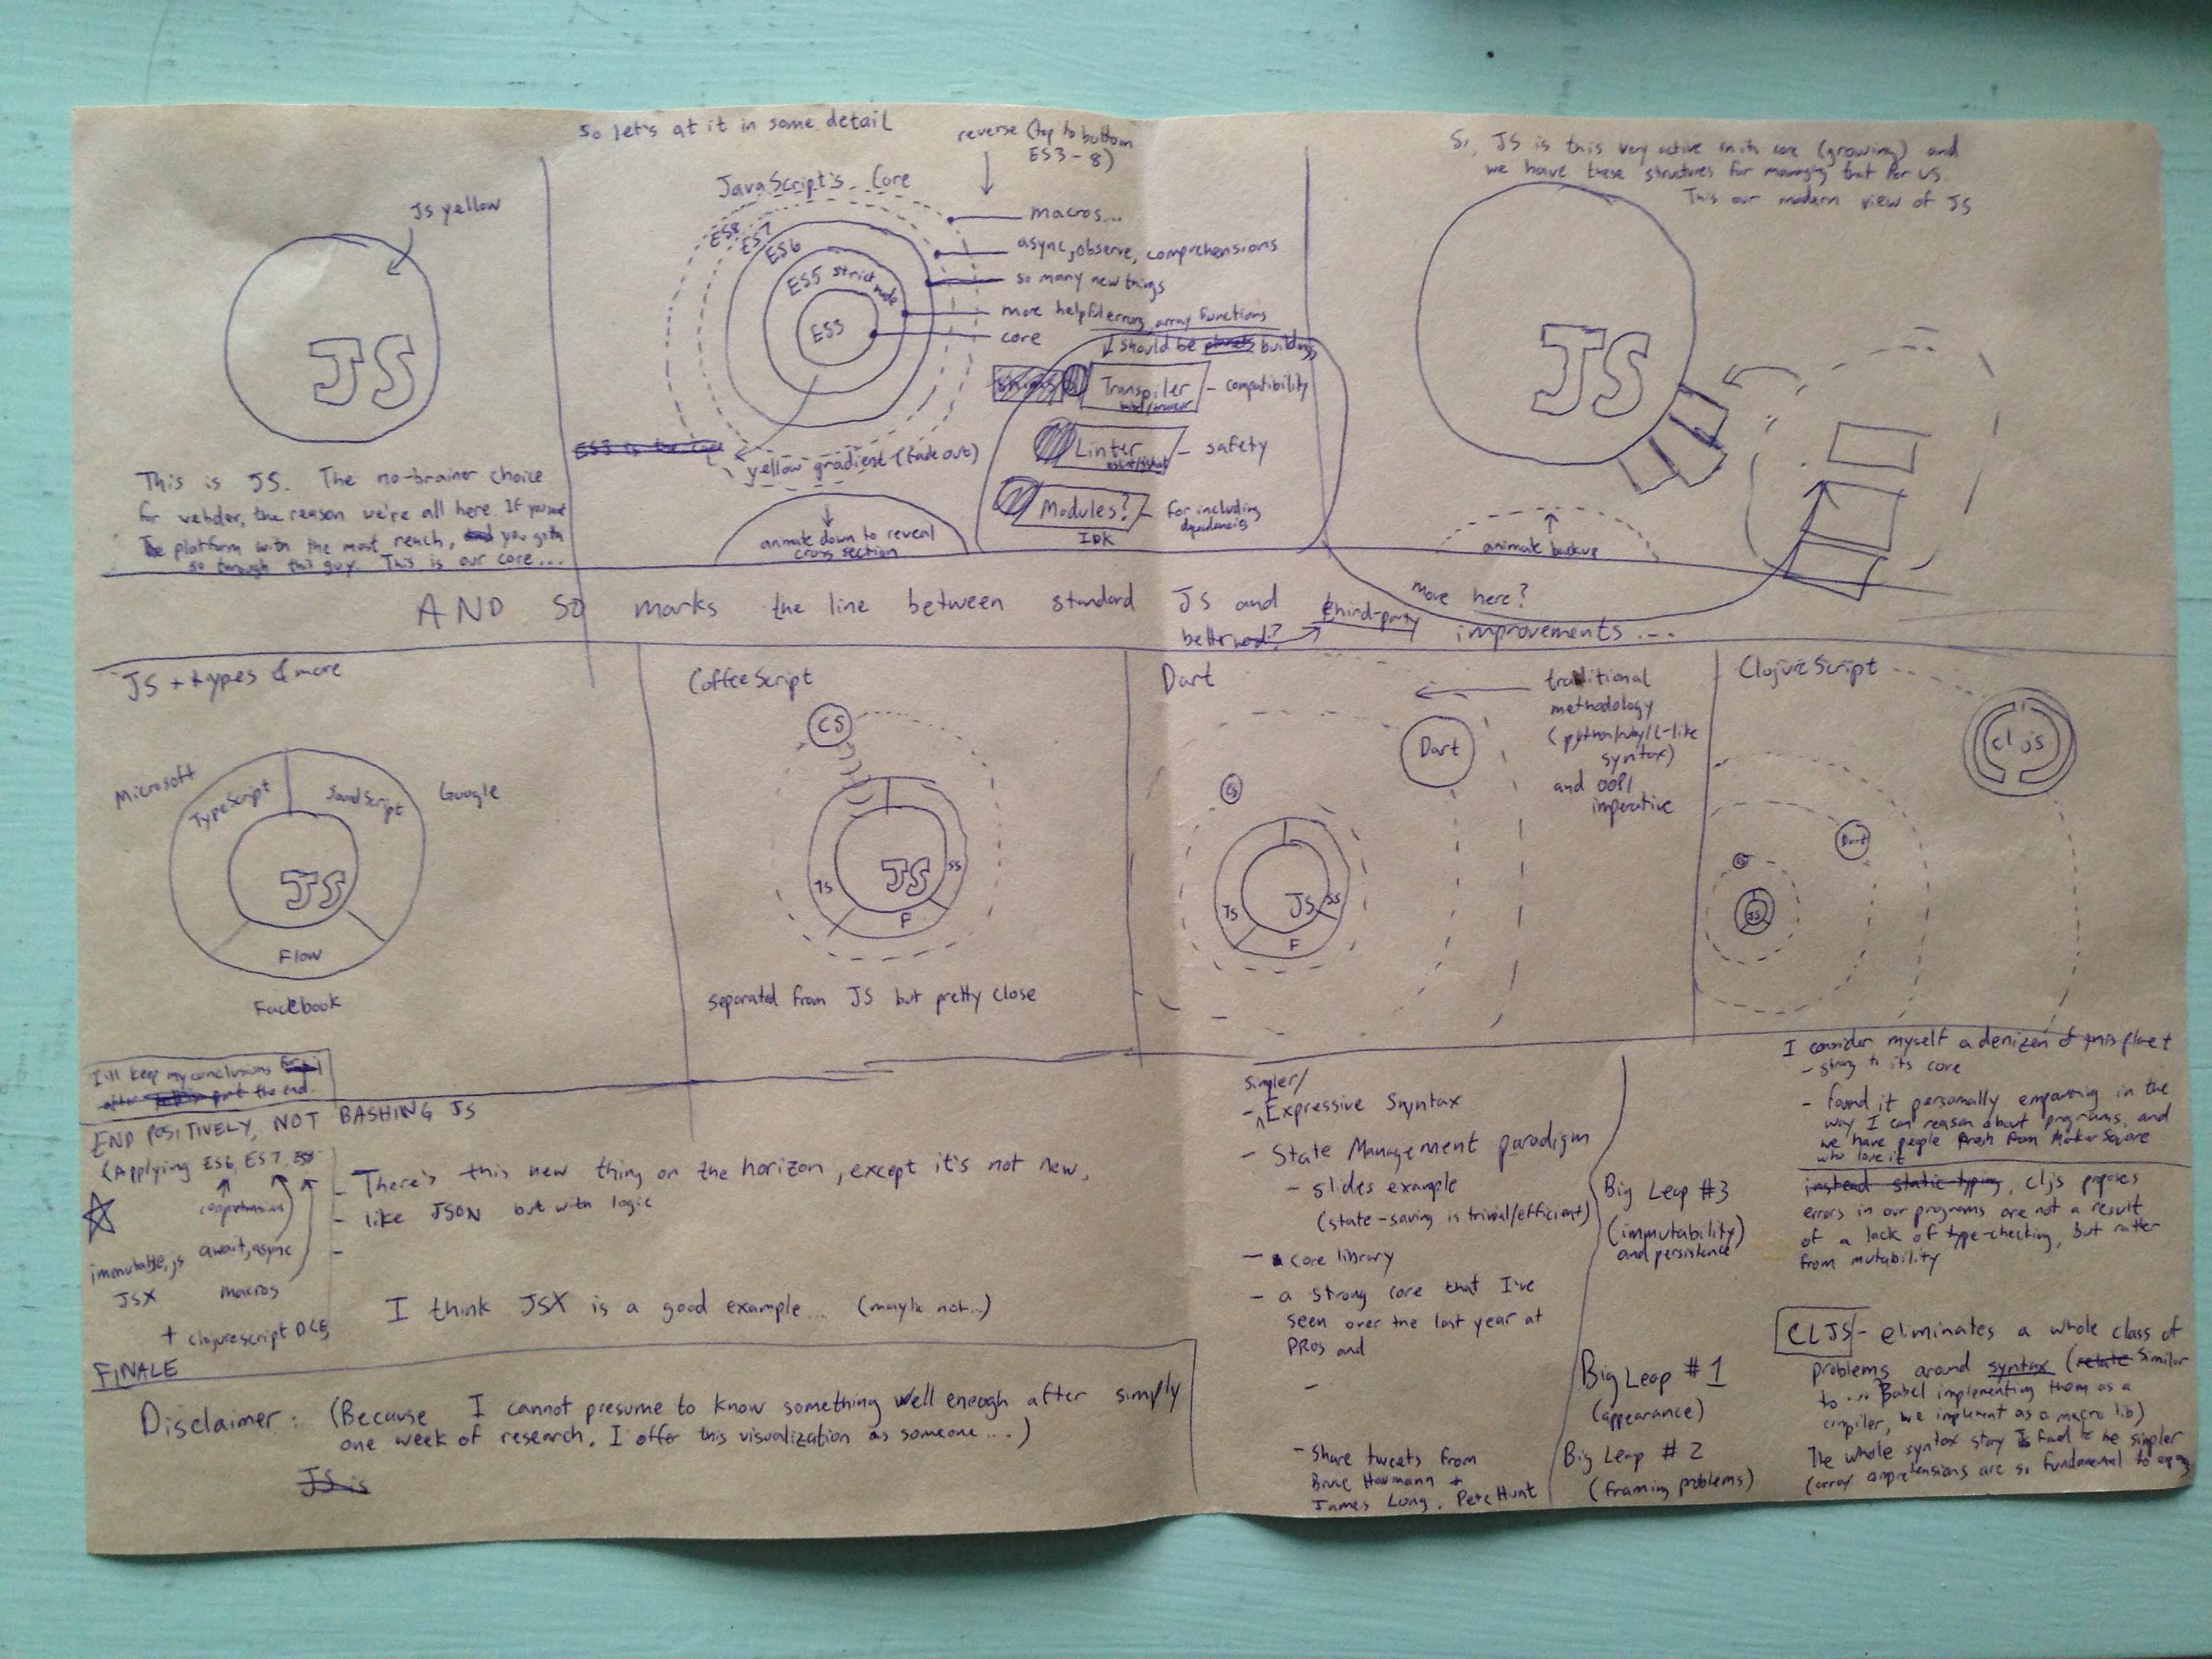 JS yellow
JS
This is JS. The no-brainer choice
for webdev, the reason we're all here. If you want
The platform with the most reach, you gotta
go through this guy. This is our core...
So let's at it in some detail
reverse (top to bottom
ES3 - 8)
JavaScript's Core
ES8
ES7
ES6
ES5 strict mode
ES3
macros...
async, observe, comprehensions
so many new things
more helpful errors, array functions
core
ES3 is the core
yellow gradient (fade out)
animate down to reveal
cross section
should be planets buildings
shims
Transpiler - compatibility
Linter - safety
Modules? - for including
dependencies
IDK
So, JS is this very active in its core (growing) and
we have these structures for managing that for us.
This our modern view of JS
JS
animate backup
Move here?
AND SO marks the line between standard JS and third-party improvements...
better word?
JS + types & more
Microsoft
TypeScript
SoundScript
Google
JS
Flow
Facebook
CoffeeScript
CS
JS
TS
SS
F
separated from JS but pretty close
Dart
Dart
CS
JS
TS
SS
F
traditional
methodology
(python/ruby/C-like
syntax)
and OOP/
imperative
ClojureScript
cljs
Dart
CS
JS
I consider myself a denizen of this planet
- strong to its core
- found it personally empowering in the
way I can reason about programs, and
we have people fresh from MakerSquare
who love it
instead static typing, cljs proposes
errors in our programs are not a result
of a lack of type-checking, but rather
from mutability
CLJS - eliminates a whole class of
problems around syntax (relate similar
to ... Babel implementing them as a
compiler, we implement as a macro lib)
The whole syntax story is had to be simpler
(array comprehensions are so fundamental to
I'll keep my conclusions
the end.
END POSITIVELY, NOT BASHING JS
(Applying ES6, ES7,
comprehensions
immutable.js await, async
JSX macros
+ clojurescript DCE
- There's this new thing on the horizon, except it's not new,
- like JSON but with logic
-
I think JSX is a good example... (maybe not...)
FINALE
Disclaimer: (Because I cannot presume to know something well enough after simply
one week of research, I offer this visualization as someone....)
JS is
simpler/
- Expressive Syntax
- State Management paradigm
- slides example
(state-saving is trivial/efficient)
- core library
- a strong core that I've
seen over the last year at
PROs and
-
- share tweets from
Bruce Haumann +
James Long, Pete Hunt
Big Leap #3
(immutability)
and persistence
Big Leap #1
(appearance)
Big Leap #2
(framing problems)